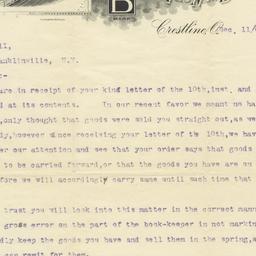 B
Crestline, O. Dec, 11/
il,
anklinville, N.Y.
:-
are in receipt of your kind letter of the 10th, inst, and
d at its contents. In our recent favor we meant no ha
,only thought that goods were sold you straight out, as we
ly, however since receiving your letter of the 10th, we hav
er our attention and see that your order says that goods
to be carried forward, or that the goods you have are on
efore we will accordingly carry same until such time that
trust you will look into this matter in the correct mann
gross error on the part of the book-keeper in not markin
dly keep the goods you have and sell them in the spring, a
can remit for them.